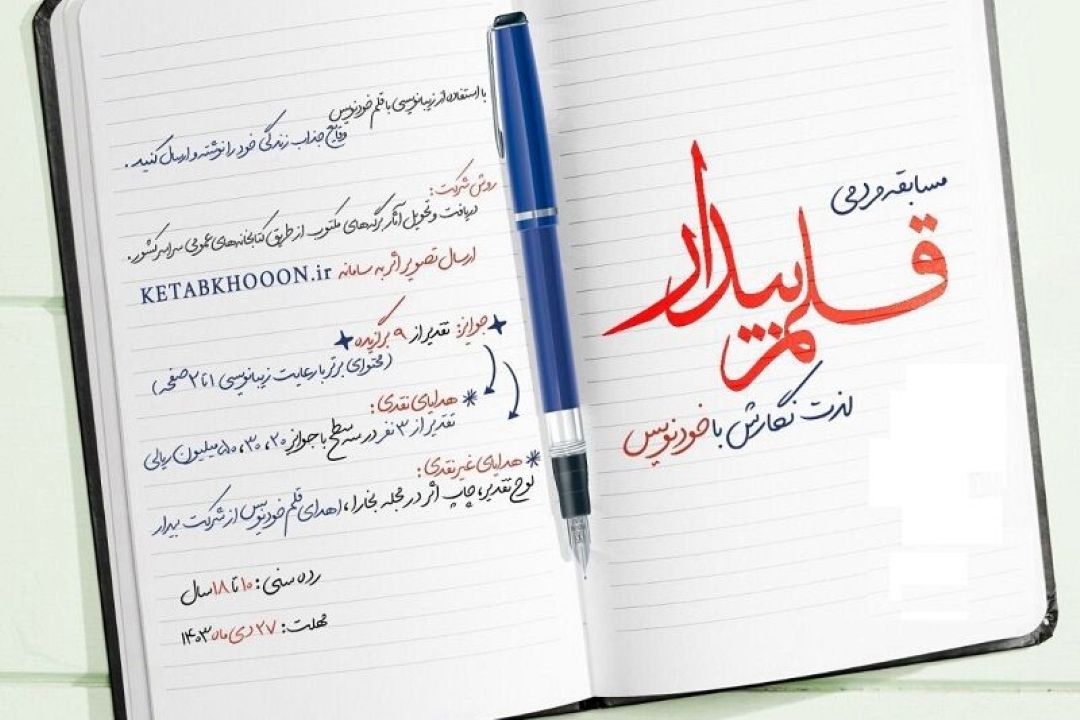 مسابقه مردمی
قلم بیدار
لذت نگارش با خودنویس
با استفاده از زیبانویسی با قلم خودنویس
وقایع جذاب زندگی خود را نوشته و ارسال کنید.
روش شرکت:
دریافت و تحویل آثار برگه‌های مکتوب از طریق کتابخانه‌های عمومی سراسر کشور.
ارسال تصویر اثر به سامانه KETABKHOOON.ir
جوایز: تقدیر از ۹ برگزیده
(محتوای برتر با رعایت زیبانویسی ۱ تا ۲ صفحه)
هدایای نقدی:
تقدیر از ۳ نفر در سه سطح با جوایز ۲۰، ۳۰، ۵۰ میلیون ریالی
هدایای غیر نقدی:
لوح تقدیر، چاپ اثر در مجله بخارا، اهدای قلم خودنویس از شرکت بیدار
رده سنی: ۱۰ تا ۱۸ سال
مهلت: ۲۷ دی ماه ۱۴۰۳